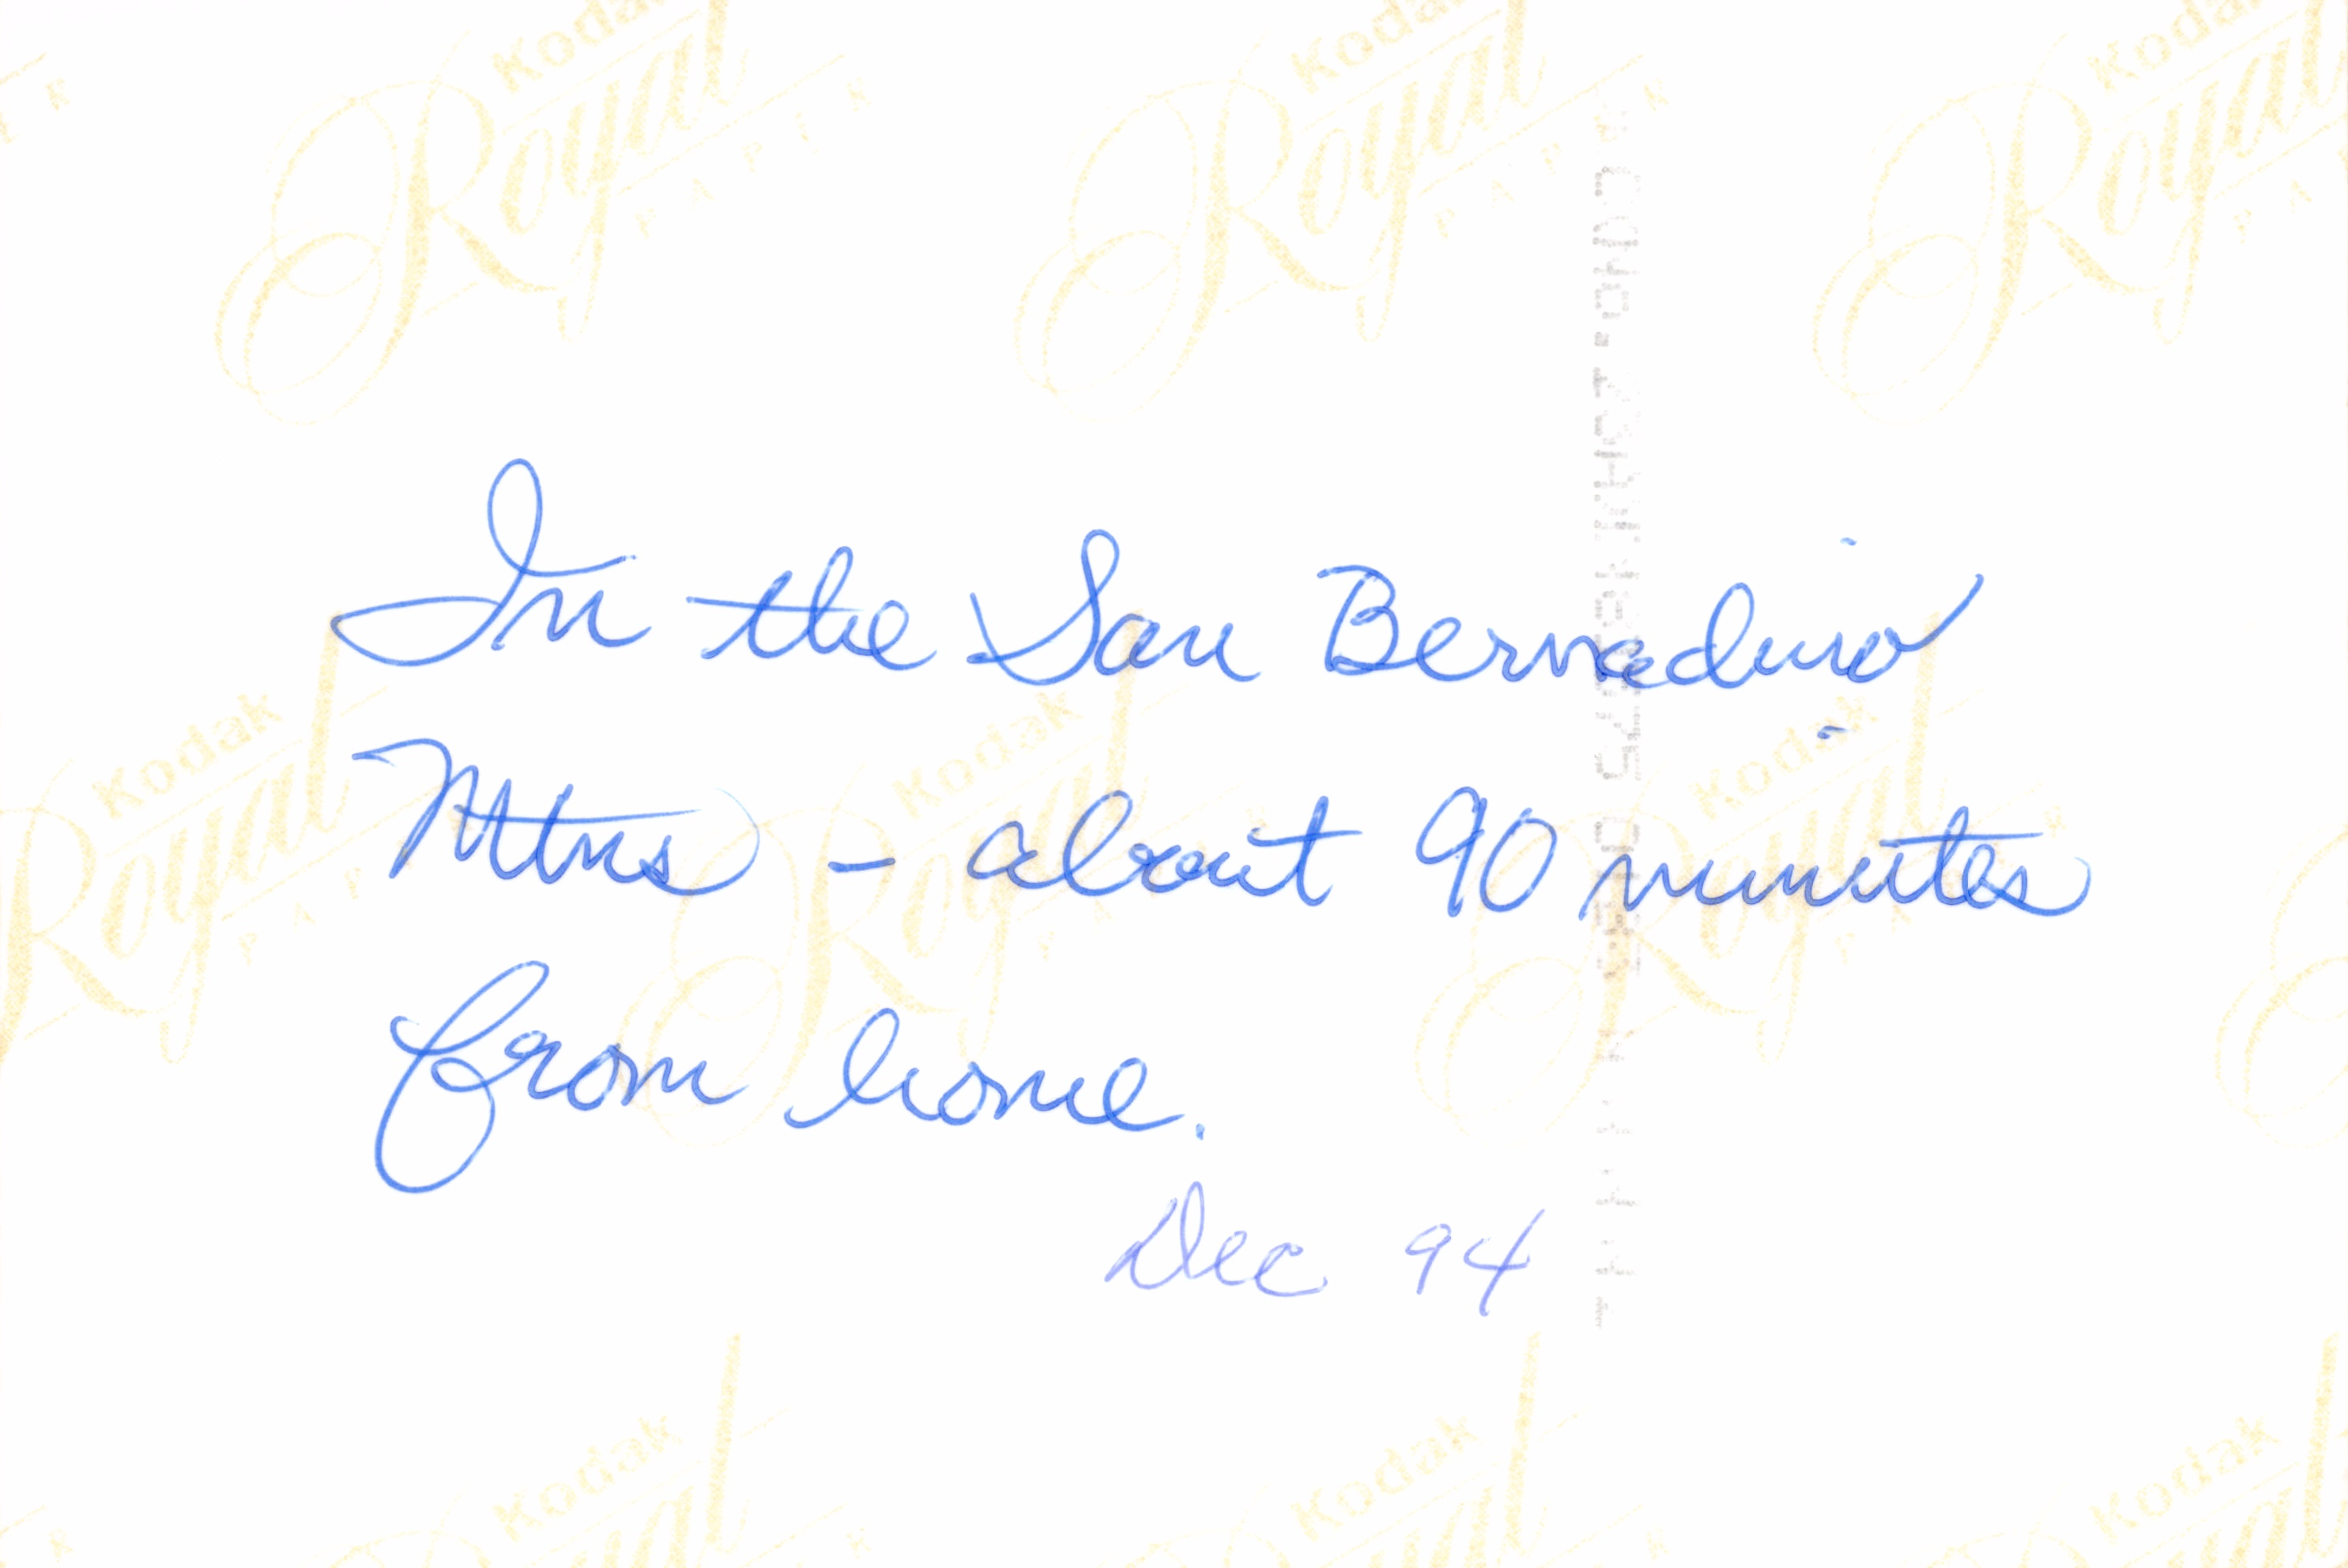 In the San Bernadino
Mtns - about 90 minutes
from home.
Dec 94
Kodak
Royal
PAPER